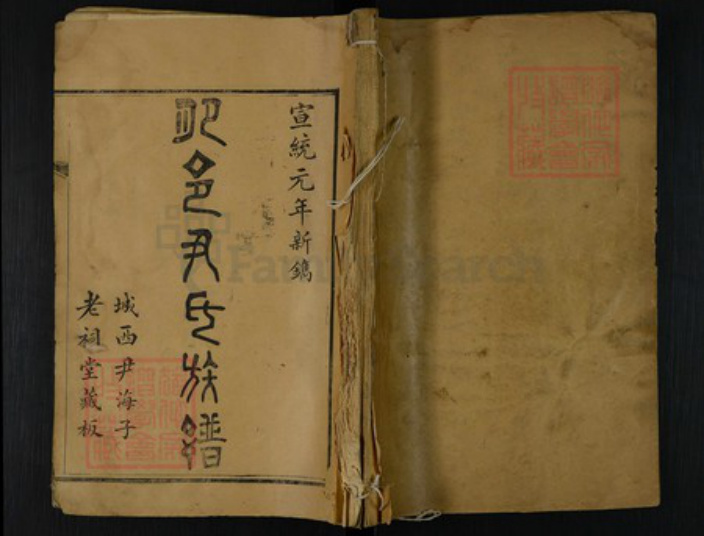 宣統元年新鐫
昭邑尹氏族譜
城西尹海子
老祠堂藏板
FamilySearch